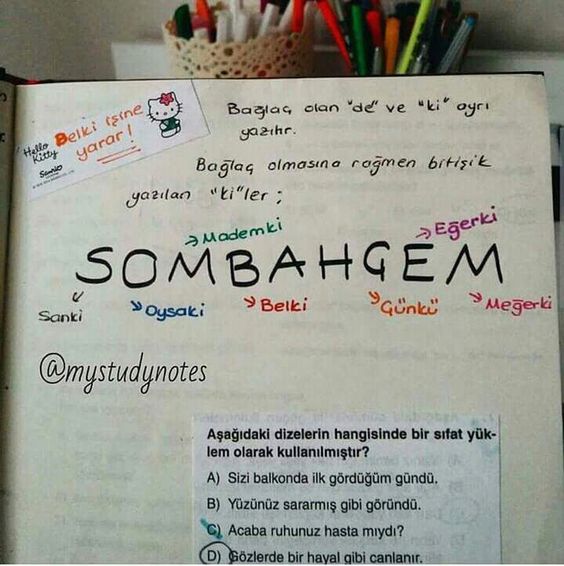 Belki işine
yarar!
Hello
Kitty
Sanrio
Bağlaç olan "de" ve "ki" ayrı
yazılır.
Bağlaç olmasına rağmen bitişik
yazılan "ki"ler ;
Mademki
Eğerki
SOMBAHGEM
Sanki
Oysaki
Belki
Günkü
Meğerki
@mystudynotes
Aşağıdaki dizelerin hangisinde bir sıfat yük-
lem olarak kullanılmıştır?
A) Sizi balkonda ilk gördüğüm gündü.
B) Yüzünüz sararmış gibi göründü.
C) Acaba ruhunuz hasta mıydı?
D) Gözlerde bir hayal gibi canlanır.